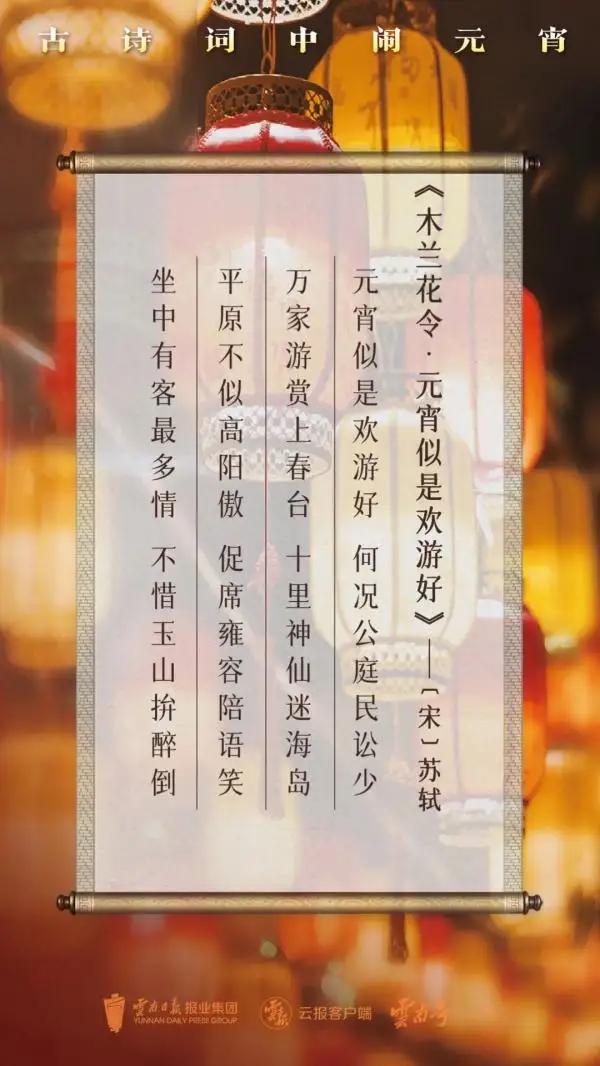 古诗词中闹元宵
《木兰花令·元宵似是欢游好》——〔宋〕苏轼
元宵似是欢游好 何况公庭民讼少
万家游赏上春台 十里神仙迷海岛
平原不似高阳傲 促席雍容陪语笑
坐中有客最多情 不惜玉山拚醉倒
雲南日报 报业集团
YUNNAN DAILY PRESS GROUP
云报客户端
雲南号